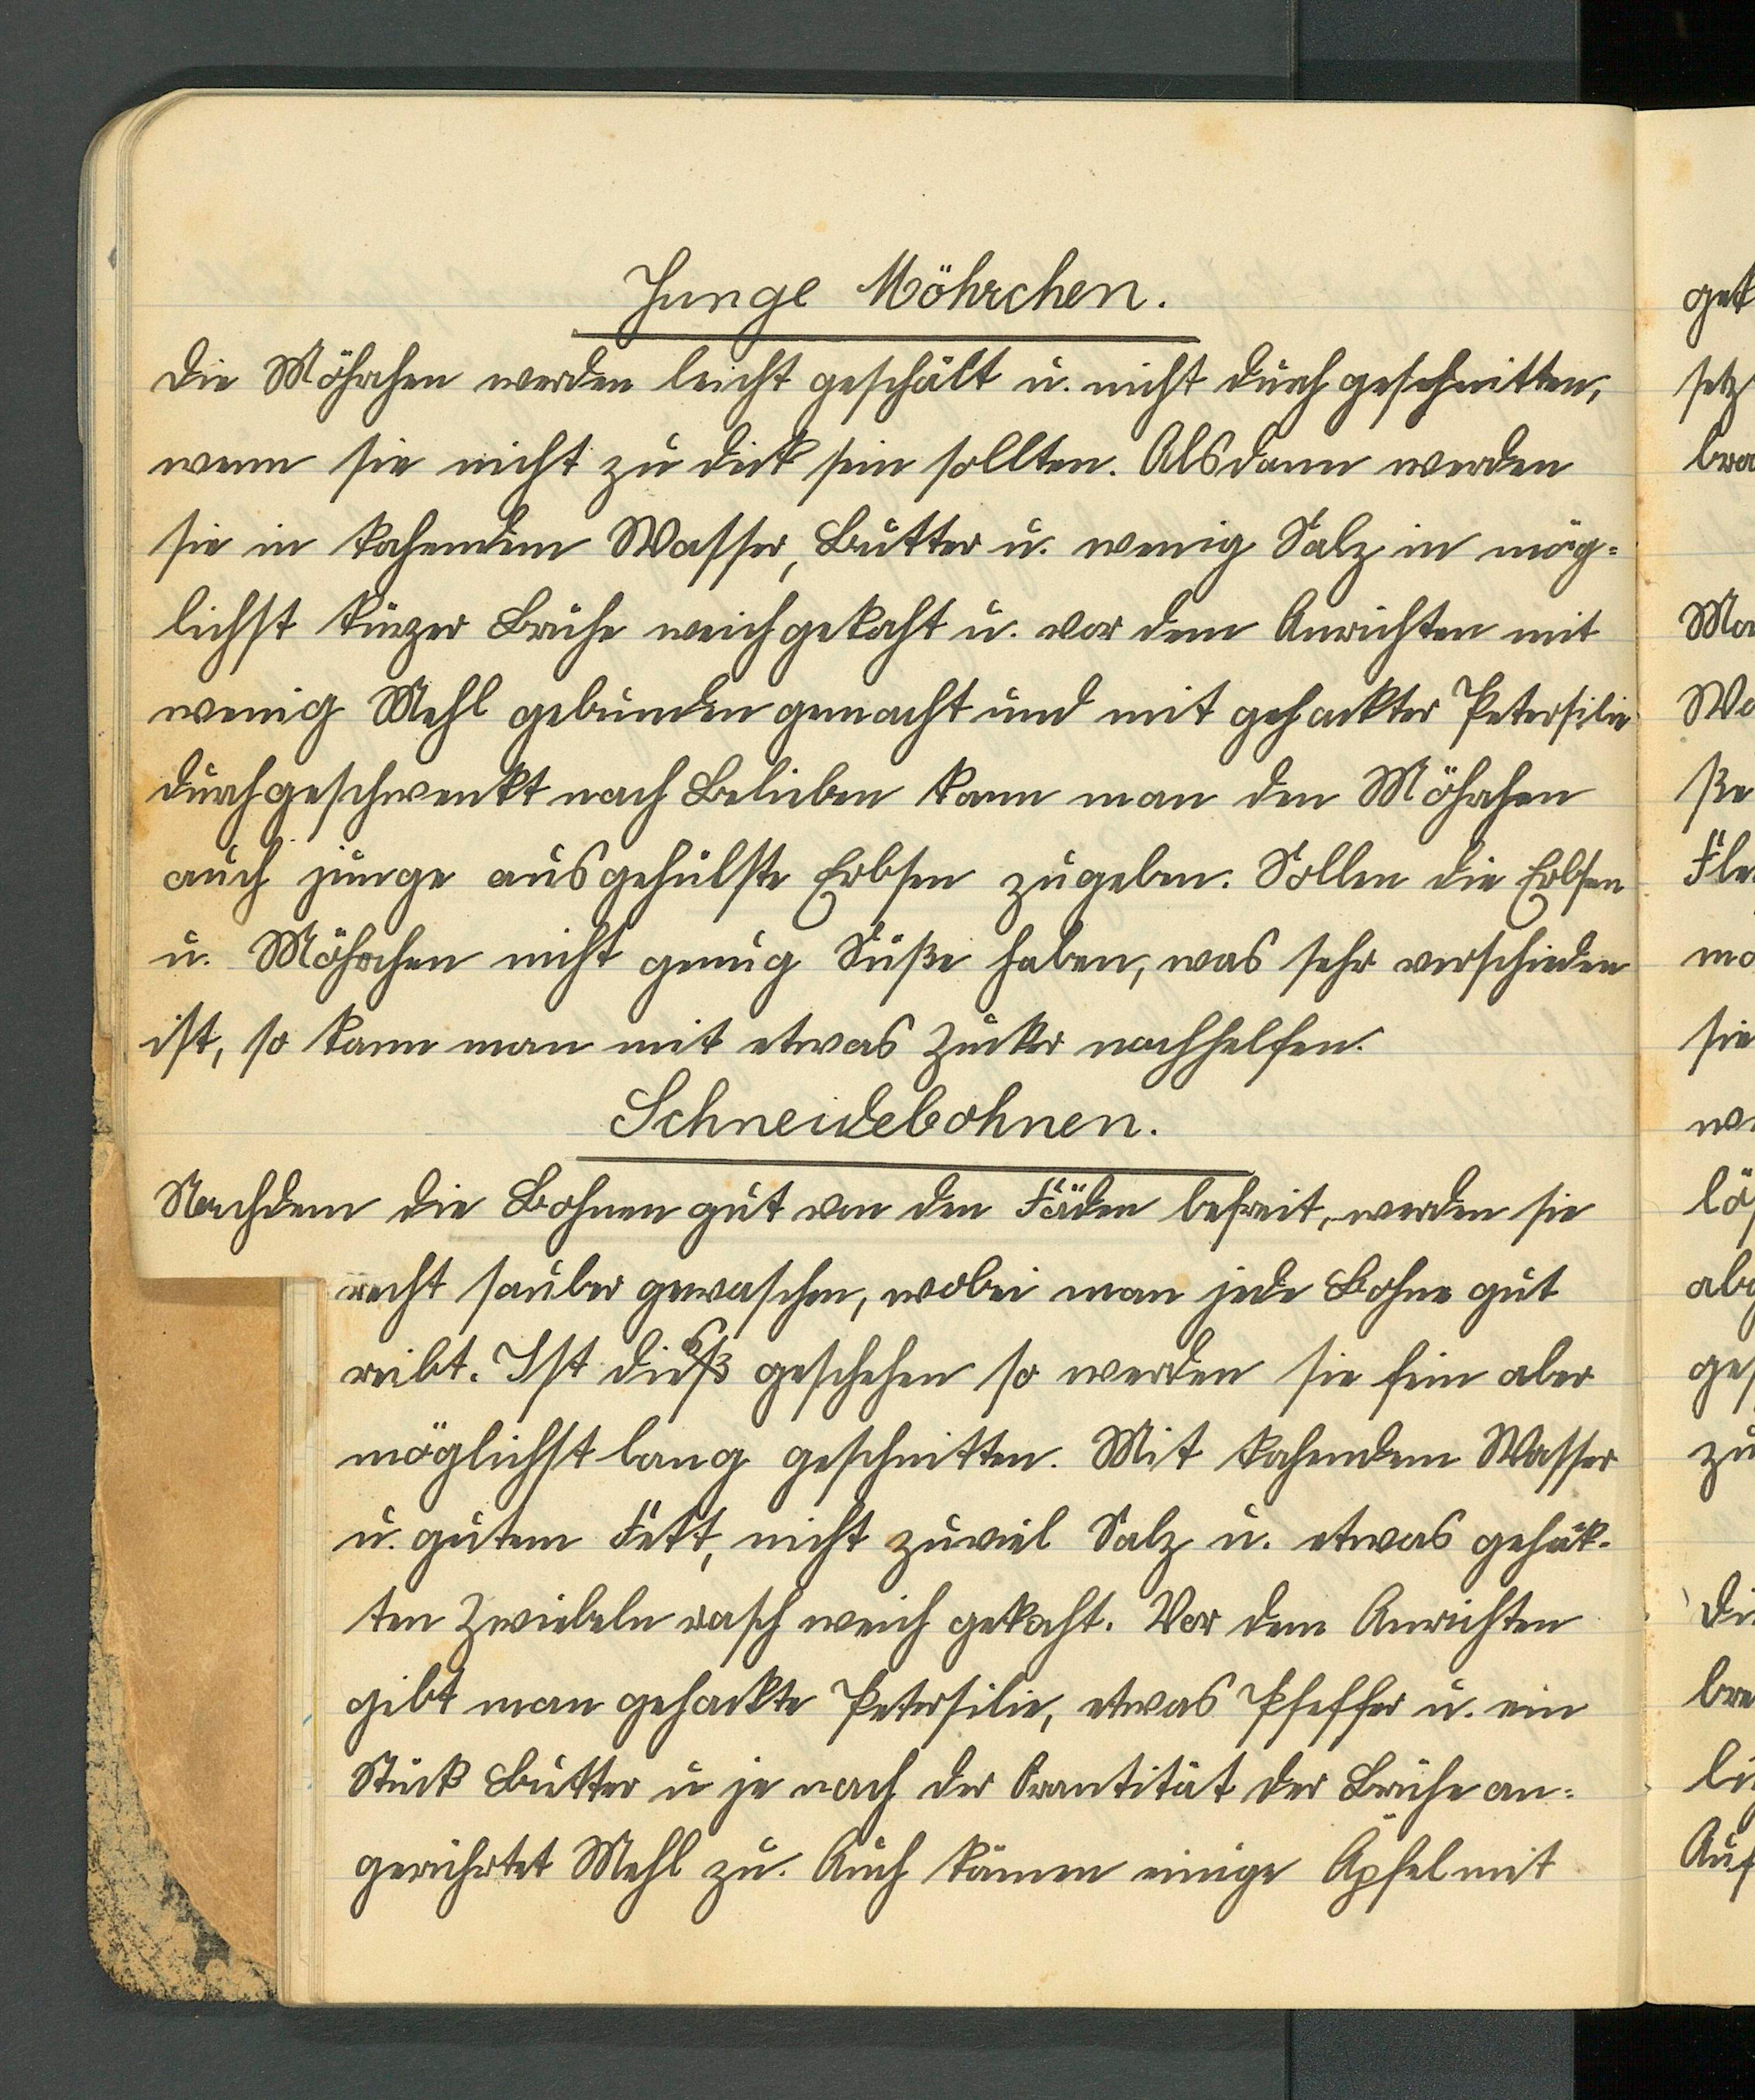 Junge Möhrchen.
Die Möhrchen werden leicht geschält u. nicht durchgeschnitten,
wenn sie nicht zu dick sein sollten. Alsdann werden
sie in kochendem Wasser, Butter u. wenig Salz in mög-
lichst kurzer Brühe weichgekocht u. vor dem Anrichten mit
wenig Mehl gebunden gemacht und mit gehackter Petersilie
durchgeschwenkt nach Belieben kann man den Möhrchen
auch junge ausgehülste Erbsen zugeben. Sollen die Erbsen
u. Möhrchen nicht genug Süße haben, was sehr verschieden
ist, so kann man mit etwas Zucker nachhelfen.
Schneidebohnen.
Nachdem die Bohnen gut von den Fäden befreit, werden sie
recht sauber gewaschen, wobei man jede Bohne gut
reibt. Ist dies geschehen so werden sie fein aber
möglichst lang geschnitten. Mit kochendem Wasser
u. gutem Fett, nicht zuviel Salz u. etwas gehak-
ten Zwiebeln rasch weich gekocht. Vor dem Anrichten
gibt man gehackte Petersilie, etwas Pfeffer u. ein
Stück Butter u je nach der Quantität der Brühe an-
gerührtet Mehl zu. Auch können einige Äpfel mit
get
setz
bra
Wa
ße
Fle
ma
sie
lö
abg
ges
zu
Di
bre
Auf